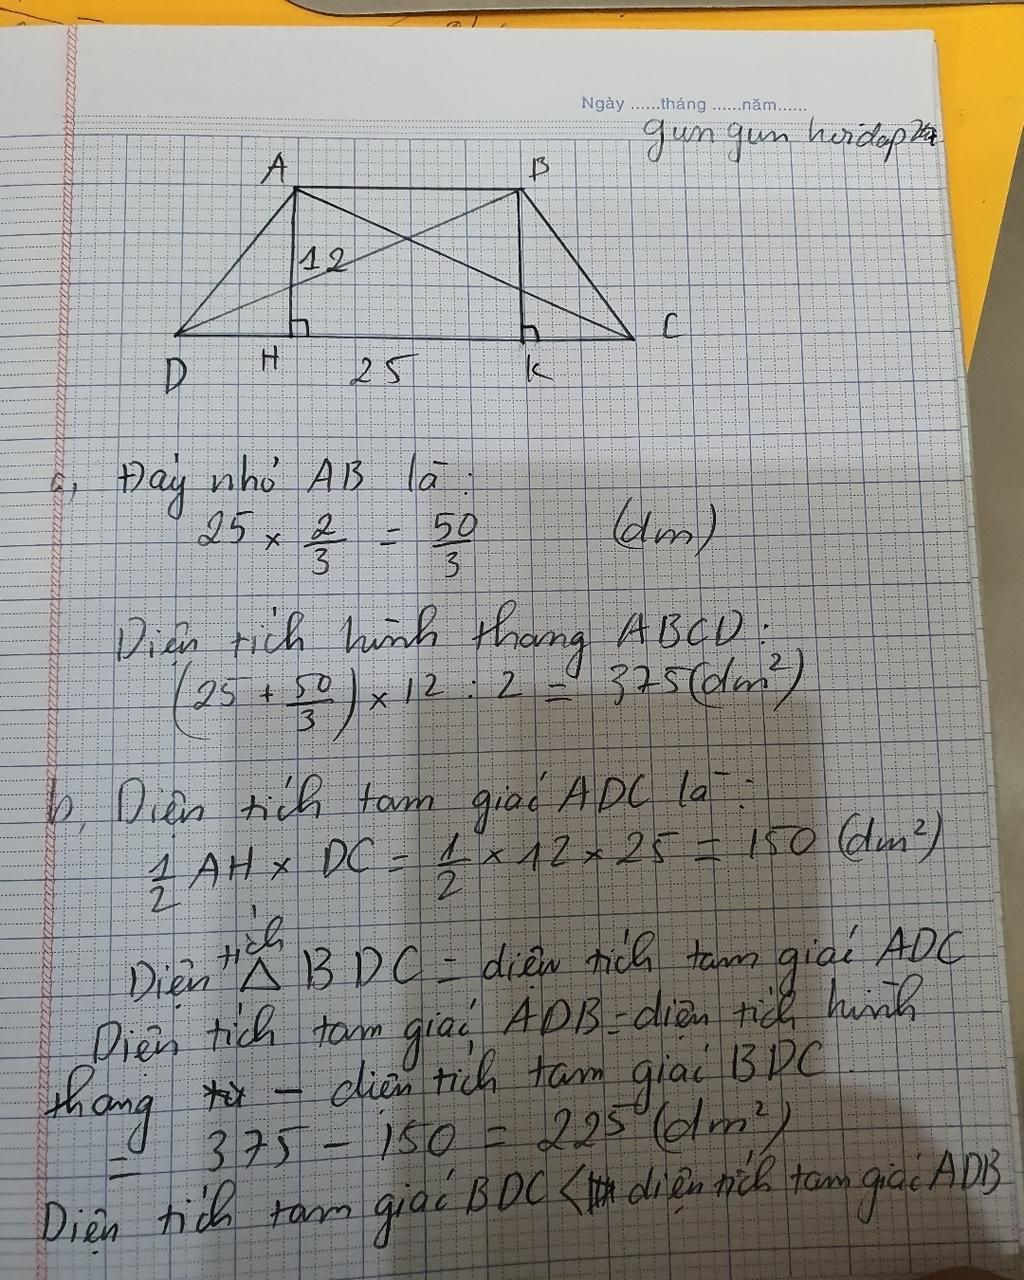 Ngày ......tháng ......năm......
gun gun hoidap
A B
12
D H 25 K C
a, Đáy nhỏ AB là:
25 × 2/3 = 50/3 (dm)
Diện tích hình thang ABCD:
(25 + 50/3) × 12 : 2 = 375 (dm²)
b, Diện tích tam giác ADC là:
1/2 AH × DC = 1/2 × 12 × 25 = 150 (dm²)
Diện tích Δ BDC = diện tích tam giác ADC
Diện tích tam giác ADB = diện tích hình
thang - diện tích tam giác BDC
= 375 - 150 = 225 (dm²)
Diện tích tam giác BDC < diện tích tam giác ADB